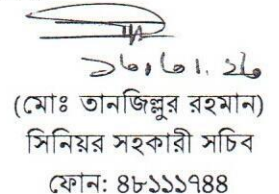 (মোঃ তানজিল্লুর রহমান)
সিনিয়র সহকারী সচিব
ফোন: ৪৮১১১৭৪৪